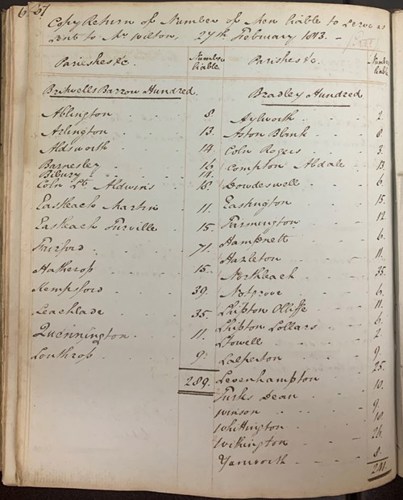 67
Copy Return of Number of Men liable to Serve as
sent to Mr Wilton, 27th February 1813. -
Parishes &c.
Number liable
Brightwells Barrow Hundred
Ablington 8
Arlington 13.
Aldsworth 14
Barnesley 16
Bibury 14
Coln St Aldwins
Eastleach Martin 11.
Eastleach Turville 15.
Fairford 71.
Hatherop 15.
Kempsford 39
Leachlade 35.
Quennington 11.
Southrop 9.
289.
Parishes &c.
Number liable
Bradley Hundred
Aylworth 2
Aston Blank 8
Coln Rogers 3
Compton Abdale 13
Dowdeswell 6.
Eastington 15
Farmington 12
Hampnett 6.
Hazleton 11.
Northleach 35.
Notgrove 6.
Shipton Olliffe 11.
Shipton Sollars 6.
Stowell 2
Salperton 9.
Sevenhampton 25.
Turks Dean 10.
Winson 9
Whittington 10.
Withington 26.
Yanworth 8.